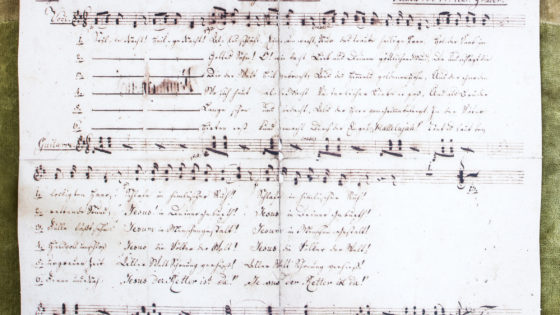 Stille Nacht! Heilige Nacht! Alles schläft. Einsam wacht Nur das traute heilige Paar. Holder Knab' im
2. Gottes Sohn! O! wie lacht Lieb' aus Deinem göttlichen Mund, Da uns schlägt die
3. Die der Welt Heil gebracht, Aus des Himmels goldenen Höhn, Uns der Gnaden
4. Wo sich heut alle Macht Väterlicher Liebe ergoß, Und als Bruder
5. Lange schon uns bedacht, Als der Herr vom Grimme befreyt In der Väter
6. Hirten erst kundgemacht Durch der Engel Halleluja! Tönt es laut bey
Guitarre
1. lockigten Haar; Schlafe in himmlischer Ruh! Schlafe in himmlischer Ruh!
2. rettende Stund. Jesus! in Deiner Geburth! Jesus in Deiner Geburth!
3. Fülle läßt seh'n Jesum in Menschengestalt! Jesum in Menschengestalt!
4. Huldvoll umschloß Jesus die Völker der Welt! Jesus die Völker der Welt!
5. urgrauer Zeit Aller Welt Schonung verhieß! Aller Welt Schonung verhieß!
6. Ferne und Nah: Jesus der Retter ist da! Jesus der Retter ist da!